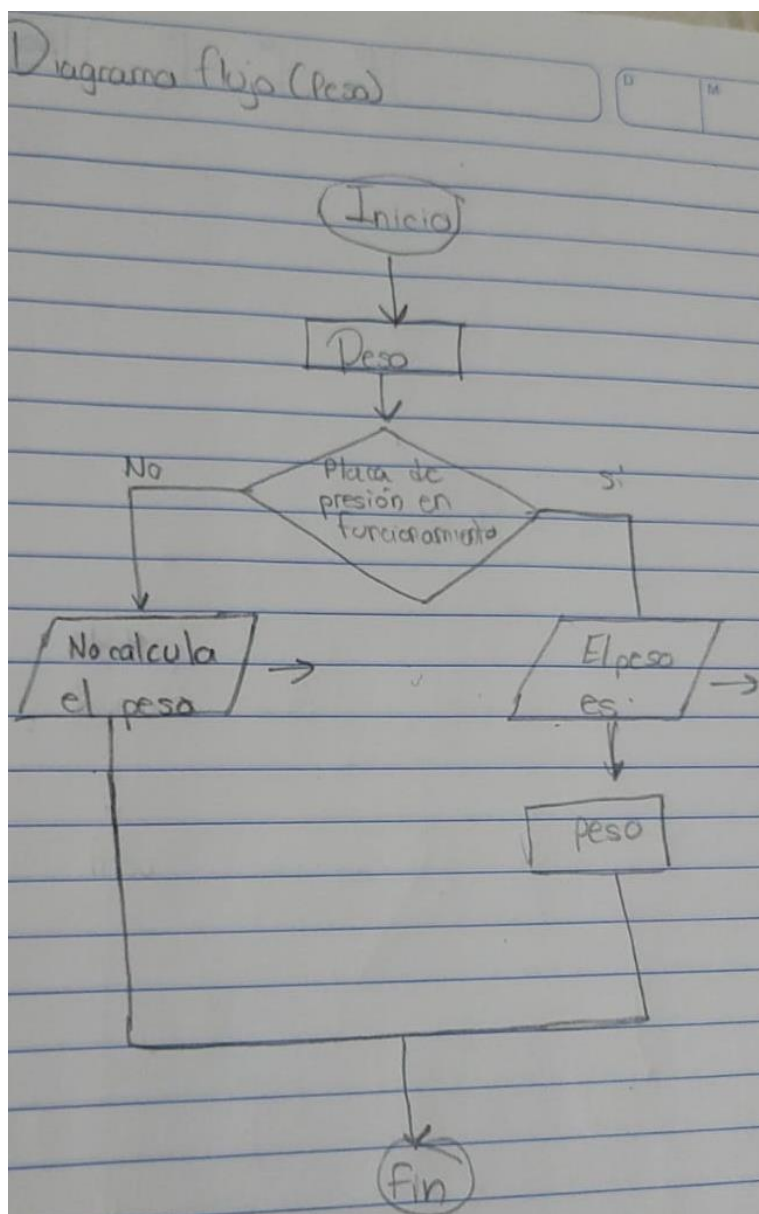 Diagrama flujo (Peso)
D
M
Inicio
Peso
No
Placa de
presión en
funcionamiento
si
No calcula
el peso
El peso
es:
peso
fin